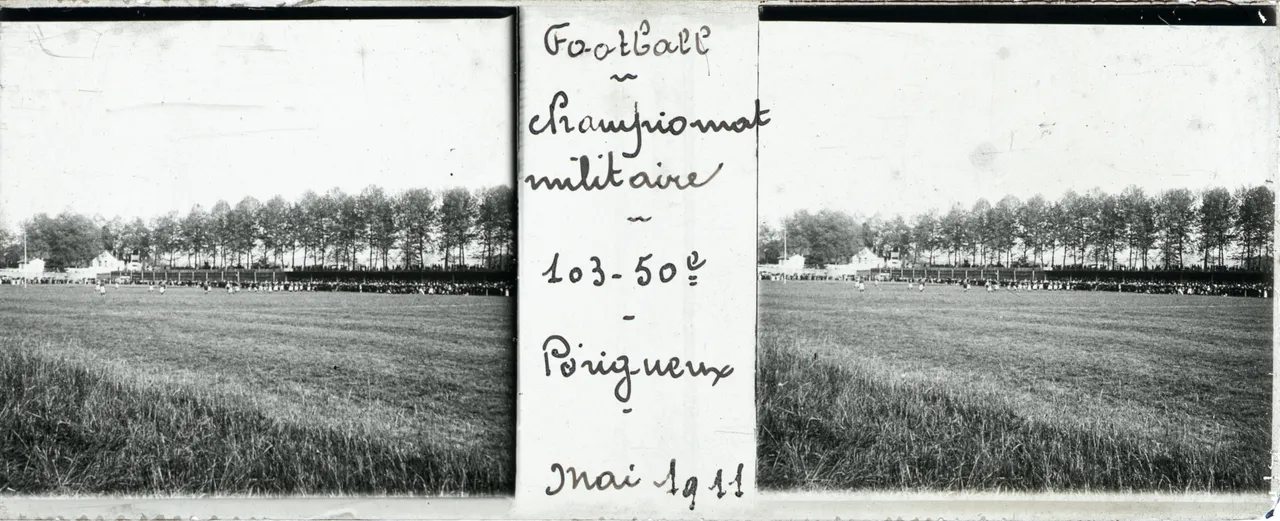 Football
championnat
militaire
103-50e
Périgueux
Mai 1911